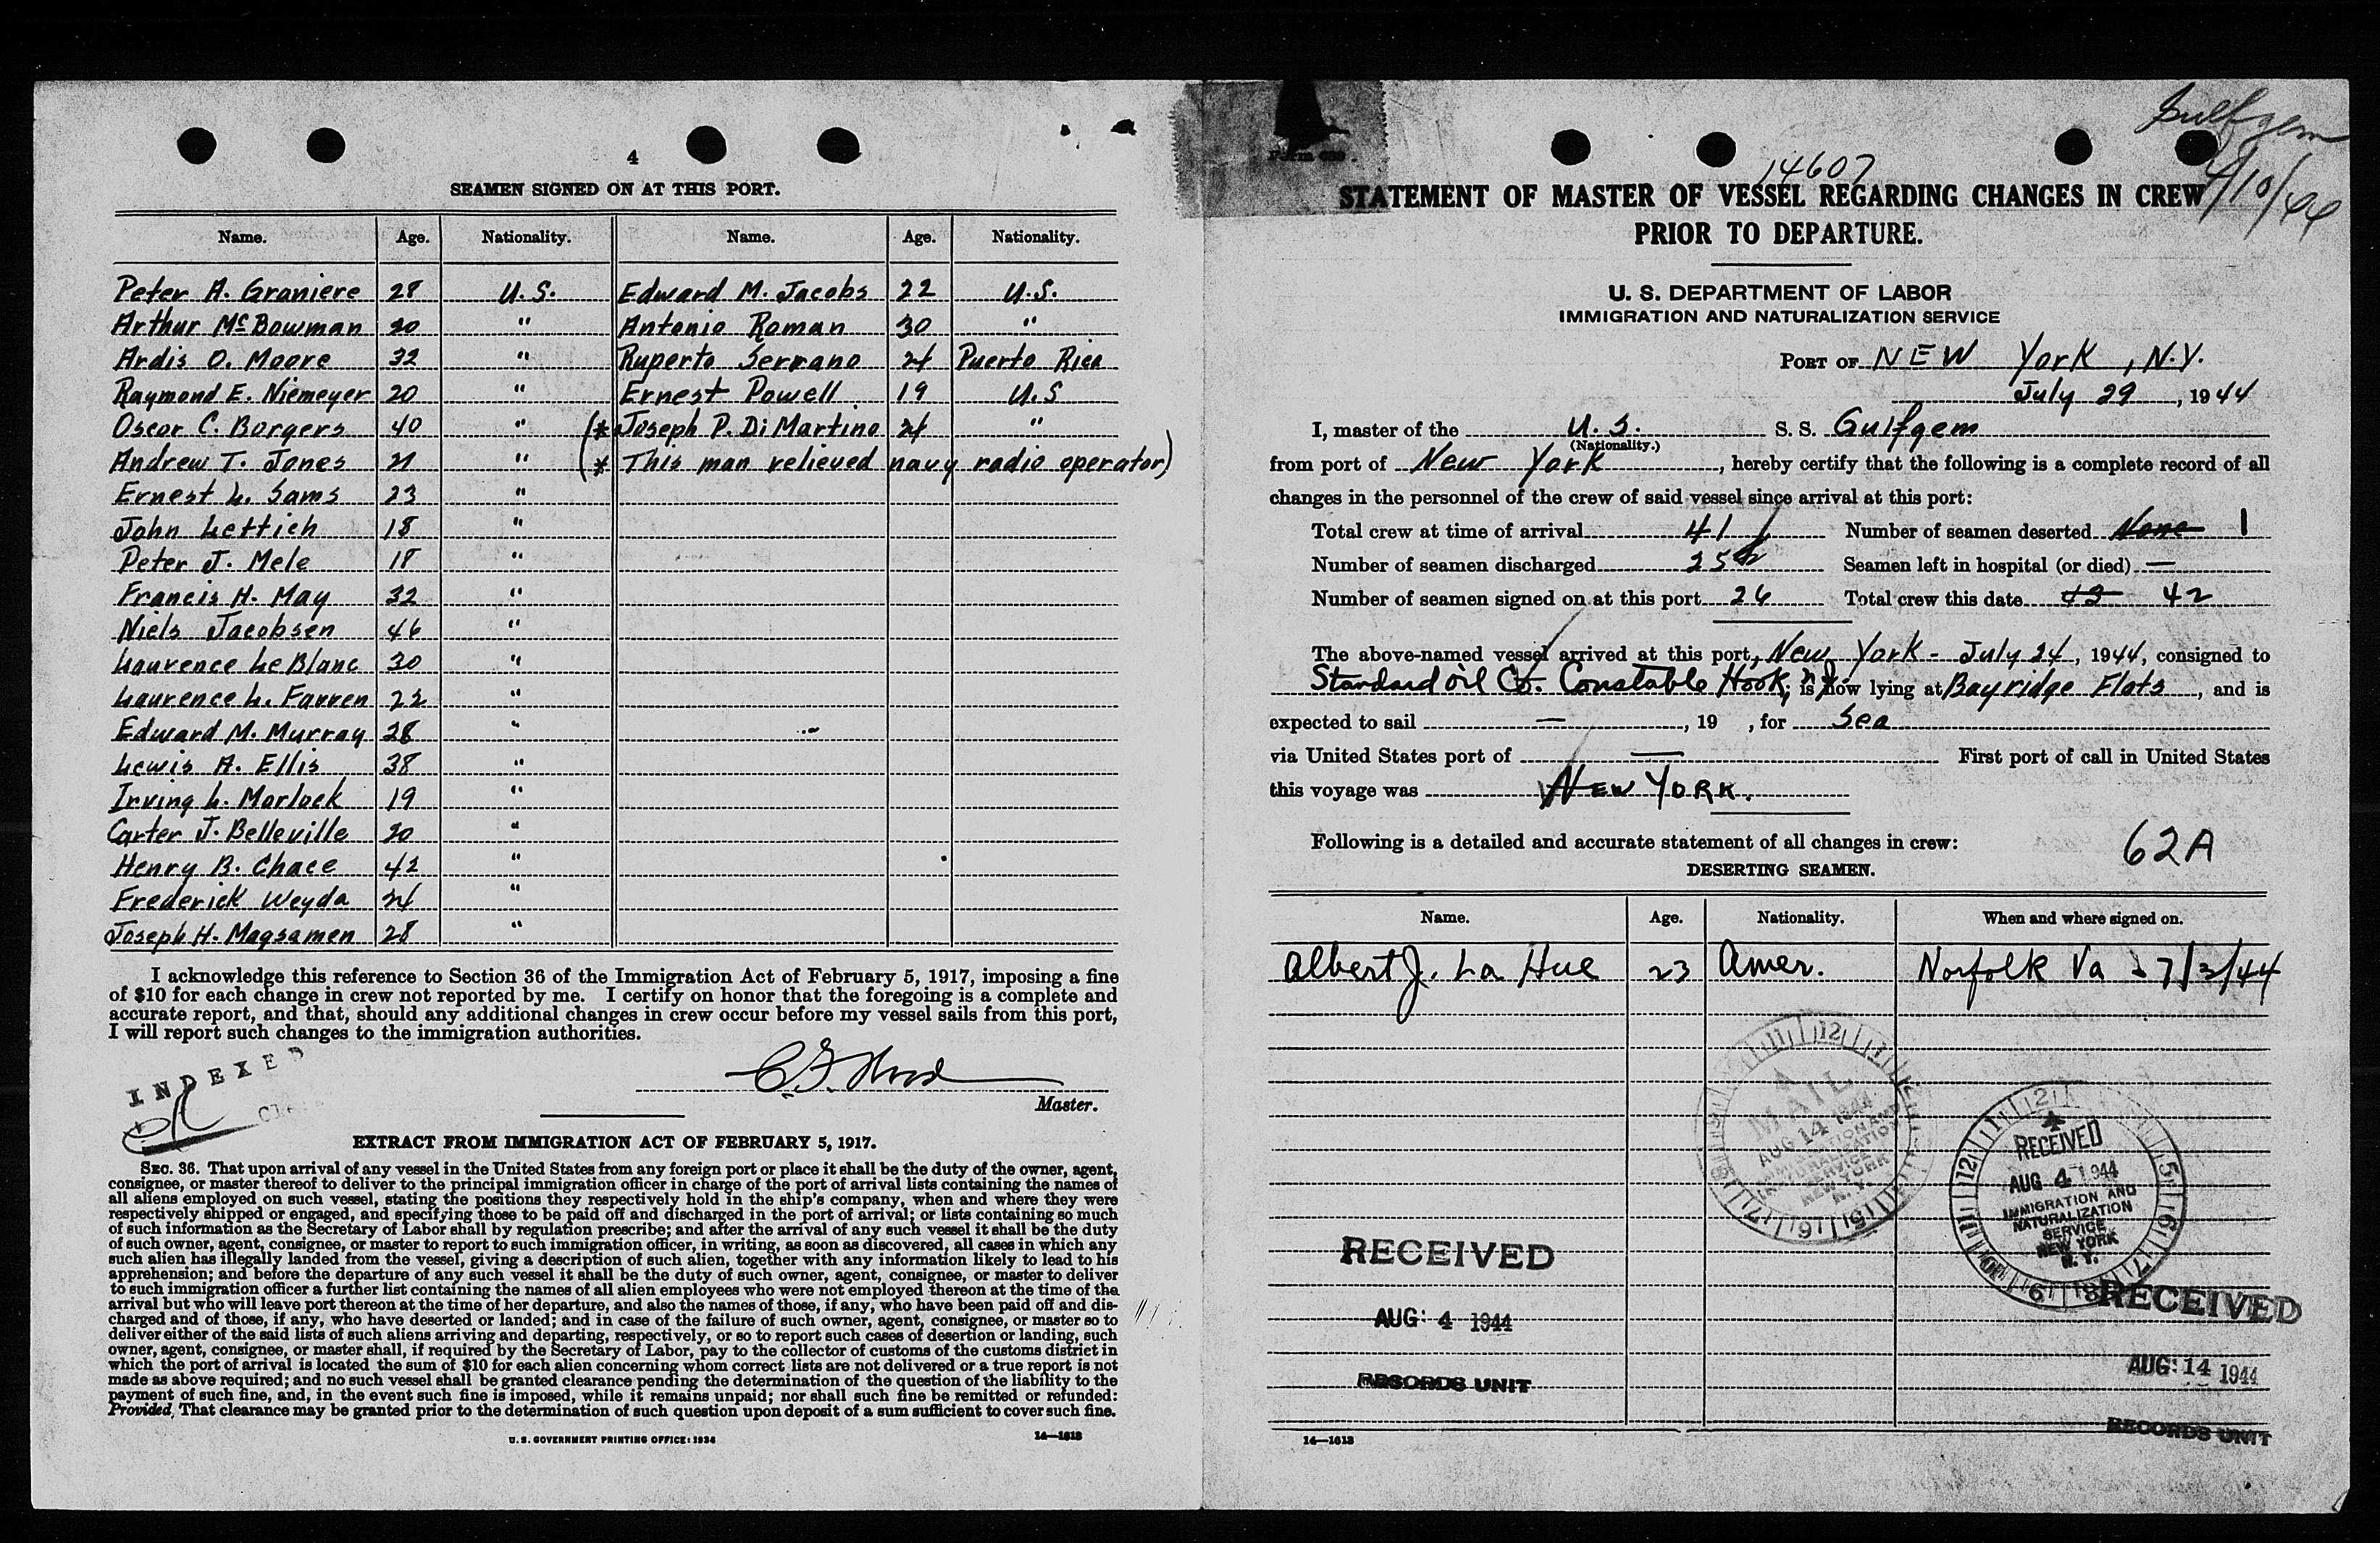 4
SEAMEN SIGNED ON AT THIS PORT.
Name. Age. Nationality. Name. Age. Nationality.
Peter A. Graniere 28 U.S. Edward M. Jacobs 22 U.S.
Arthur Mc Bowman 20 " Antonio Roman 30 "
Ardis O. Moore 32 " Ruperto Serrano 24 Puerto Rico
Raymond E. Niemeyer 20 " Ernest Powell 19 U.S
Oscar C. Borgers 40 " (* Joseph P. Di Martino 24 "
Andrew T. Jones 21 " (* This man relieved navy radio operator)
Ernest L. Sams 23 "
John Lettich 18 "
Peter J. Mele 18 "
Francis H. May 32 "
Niels Jacobsen 46 "
Laurence Le Blanc 30 "
Laurence L. Farren 22 "
Edward M. Murray 28 "
Lewis A. Ellis 38 "
Irving L. Morlock 19 "
Carter J. Belleville 20 "
Henry B. Chace 42 "
Frederick Weyda 24 "
Joseph H. Magsamen 28 "
I acknowledge this reference to Section 36 of the Immigration Act of February 5, 1917, imposing a fine
of $10 for each change in crew not reported by me. I certify on honor that the foregoing is a complete and
accurate report, and that, should any additional changes in crew occur before my vessel sails from this port,
I will report such changes to the immigration authorities.
INDEXED
Master.
EXTRACT FROM IMMIGRATION ACT OF FEBRUARY 5, 1917.
SEC. 36. That upon arrival of any vessel in the United States from any foreign port or place it shall be the duty of the owner, agent,
consignee, or master thereof to deliver to the principal immigration officer in charge of the port of arrival lists containing the names of
all aliens employed on such vessel, stating the positions they respectively hold in the ship's company, when and where they were
respectively shipped or engaged, and specifying those to be paid off and discharged in the port of arrival; or lists containing so much
of such information as the Secretary of Labor shall by regulation prescribe; and after the arrival of any such vessel it shall be the duty
of such owner, agent, consignee, or master to report to such immigration officer, in writing, as soon as discovered, all cases in which any
such alien has illegally landed from the vessel, giving a description of such alien, together with any information likely to lead to his
apprehension; and before the departure of any such vessel it shall be the duty of such owner, agent, consignee, or master to deliver
to such immigration officer a further list containing the names of all alien employees who were not employed thereon at the time of the
arrival but who will leave port thereon at the time of her departure, and also the names of those, if any, who have been paid off and dis-
charged and of those, if any, who have deserted or landed; and in case of the failure of such owner, agent, consignee, or master so to
deliver either of the said lists of such aliens arriving and departing, respectively, or so to report such cases of desertion or landing, such
owner, agent, consignee, or master shall, if required by the Secretary of Labor, pay to the collector of customs of the customs district in
which the port of arrival is located the sum of $10 for each alien concerning whom correct lists are not delivered or a true report is not
made as above required; and no such vessel shall be granted clearance pending the determination of the question of the liability to the
payment of such fine, and, in the event such fine is imposed, while it remains unpaid; nor shall such fine be remitted or refunded:
Provided, That clearance may be granted prior to the determination of such question upon deposit of a sum sufficient to cover such fine.
U. S. GOVERNMENT PRINTING OFFICE: 1934 14—1613
Gulfgem
14607
STATEMENT OF MASTER OF VESSEL REGARDING CHANGES IN CREW
PRIOR TO DEPARTURE.
U. S. DEPARTMENT OF LABOR
IMMIGRATION AND NATURALIZATION SERVICE
PORT OF NEW York, N.Y.
July 29, 1944
I, master of the U.S. S. S. Gulfgem
(Nationality.)
from port of New York, hereby certify that the following is a complete record of all
changes in the personnel of the crew of said vessel since arrival at this port:
Total crew at time of arrival 41 Number of seamen deserted None 1
Number of seamen discharged 25 Seamen left in hospital (or died) —
Number of seamen signed on at this port 26 Total crew this date 43 42
The above-named vessel arrived at this port, New York - July 24, 1944, consigned to
Standard oil Co. Constable Hook, is now lying at Bayridge Flats, and is
expected to sail —, 19 , for Sea
via United States port of — First port of call in United States
this voyage was NEW YORK.
Following is a detailed and accurate statement of all changes in crew: 62A
DESERTING SEAMEN.
Name. Age. Nationality. When and where signed on.
Albert J. La Hue 23 Amer. Norfolk Va - 7/3/44
MAIL
AUG 14 1944
IMMIGRATION AND
NATURALIZATION
SERVICE
NEW YORK
N. Y.
RECEIVED
AUG 4 1944
IMMIGRATION AND
NATURALIZATION
SERVICE
NEW YORK
N. Y.
RECEIVED
AUG 4 1944
RECORDS UNIT
RECEIVED
AUG 14 1944
RECORDS UNIT
14—1613